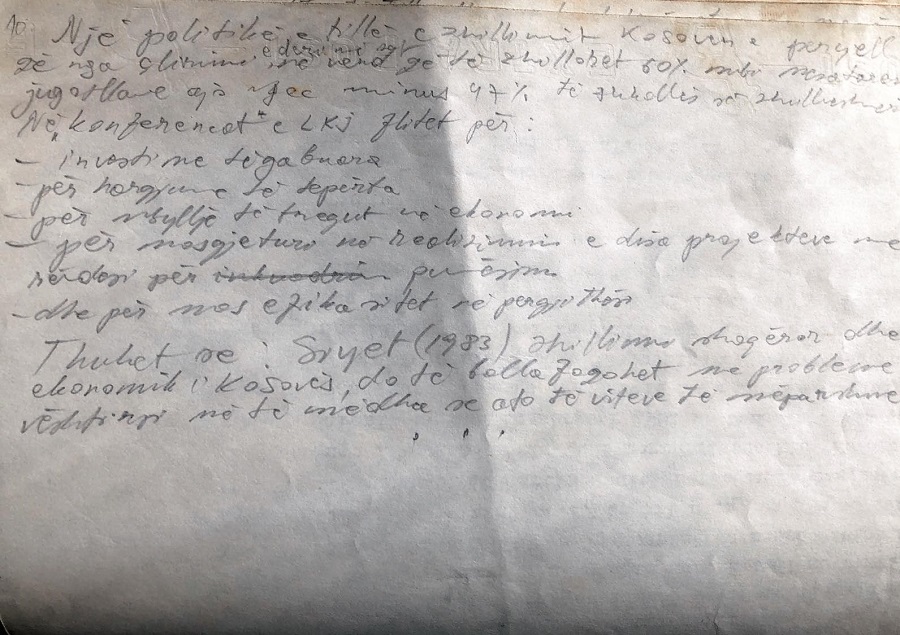 10. Një politikë e tillë e zhvillimit Kosovën e
që nga çlirimi e deri më sot në vend që të zhvillohet 60% mbi mesataren
jugosllave ajo veç minus 47% të
Në "konferencat" e LKJ flitet për:
- investime të gabuara
- për harxhime të tepërta
- për mbyllje të tregut në ekonomi
- për mosgjeturi në realizimin e disa projekteve me
rëndësi për punësim
- dhe për mos efikasitet në përgjithësi
Thuhet se: Sivjet (1983) zhvillimi shoqëror dhe
ekonomik i Kosovës, do të ballafaqohet me probleme
vështirësi më të mëdha se ato të viteve të mëparshme
. . .